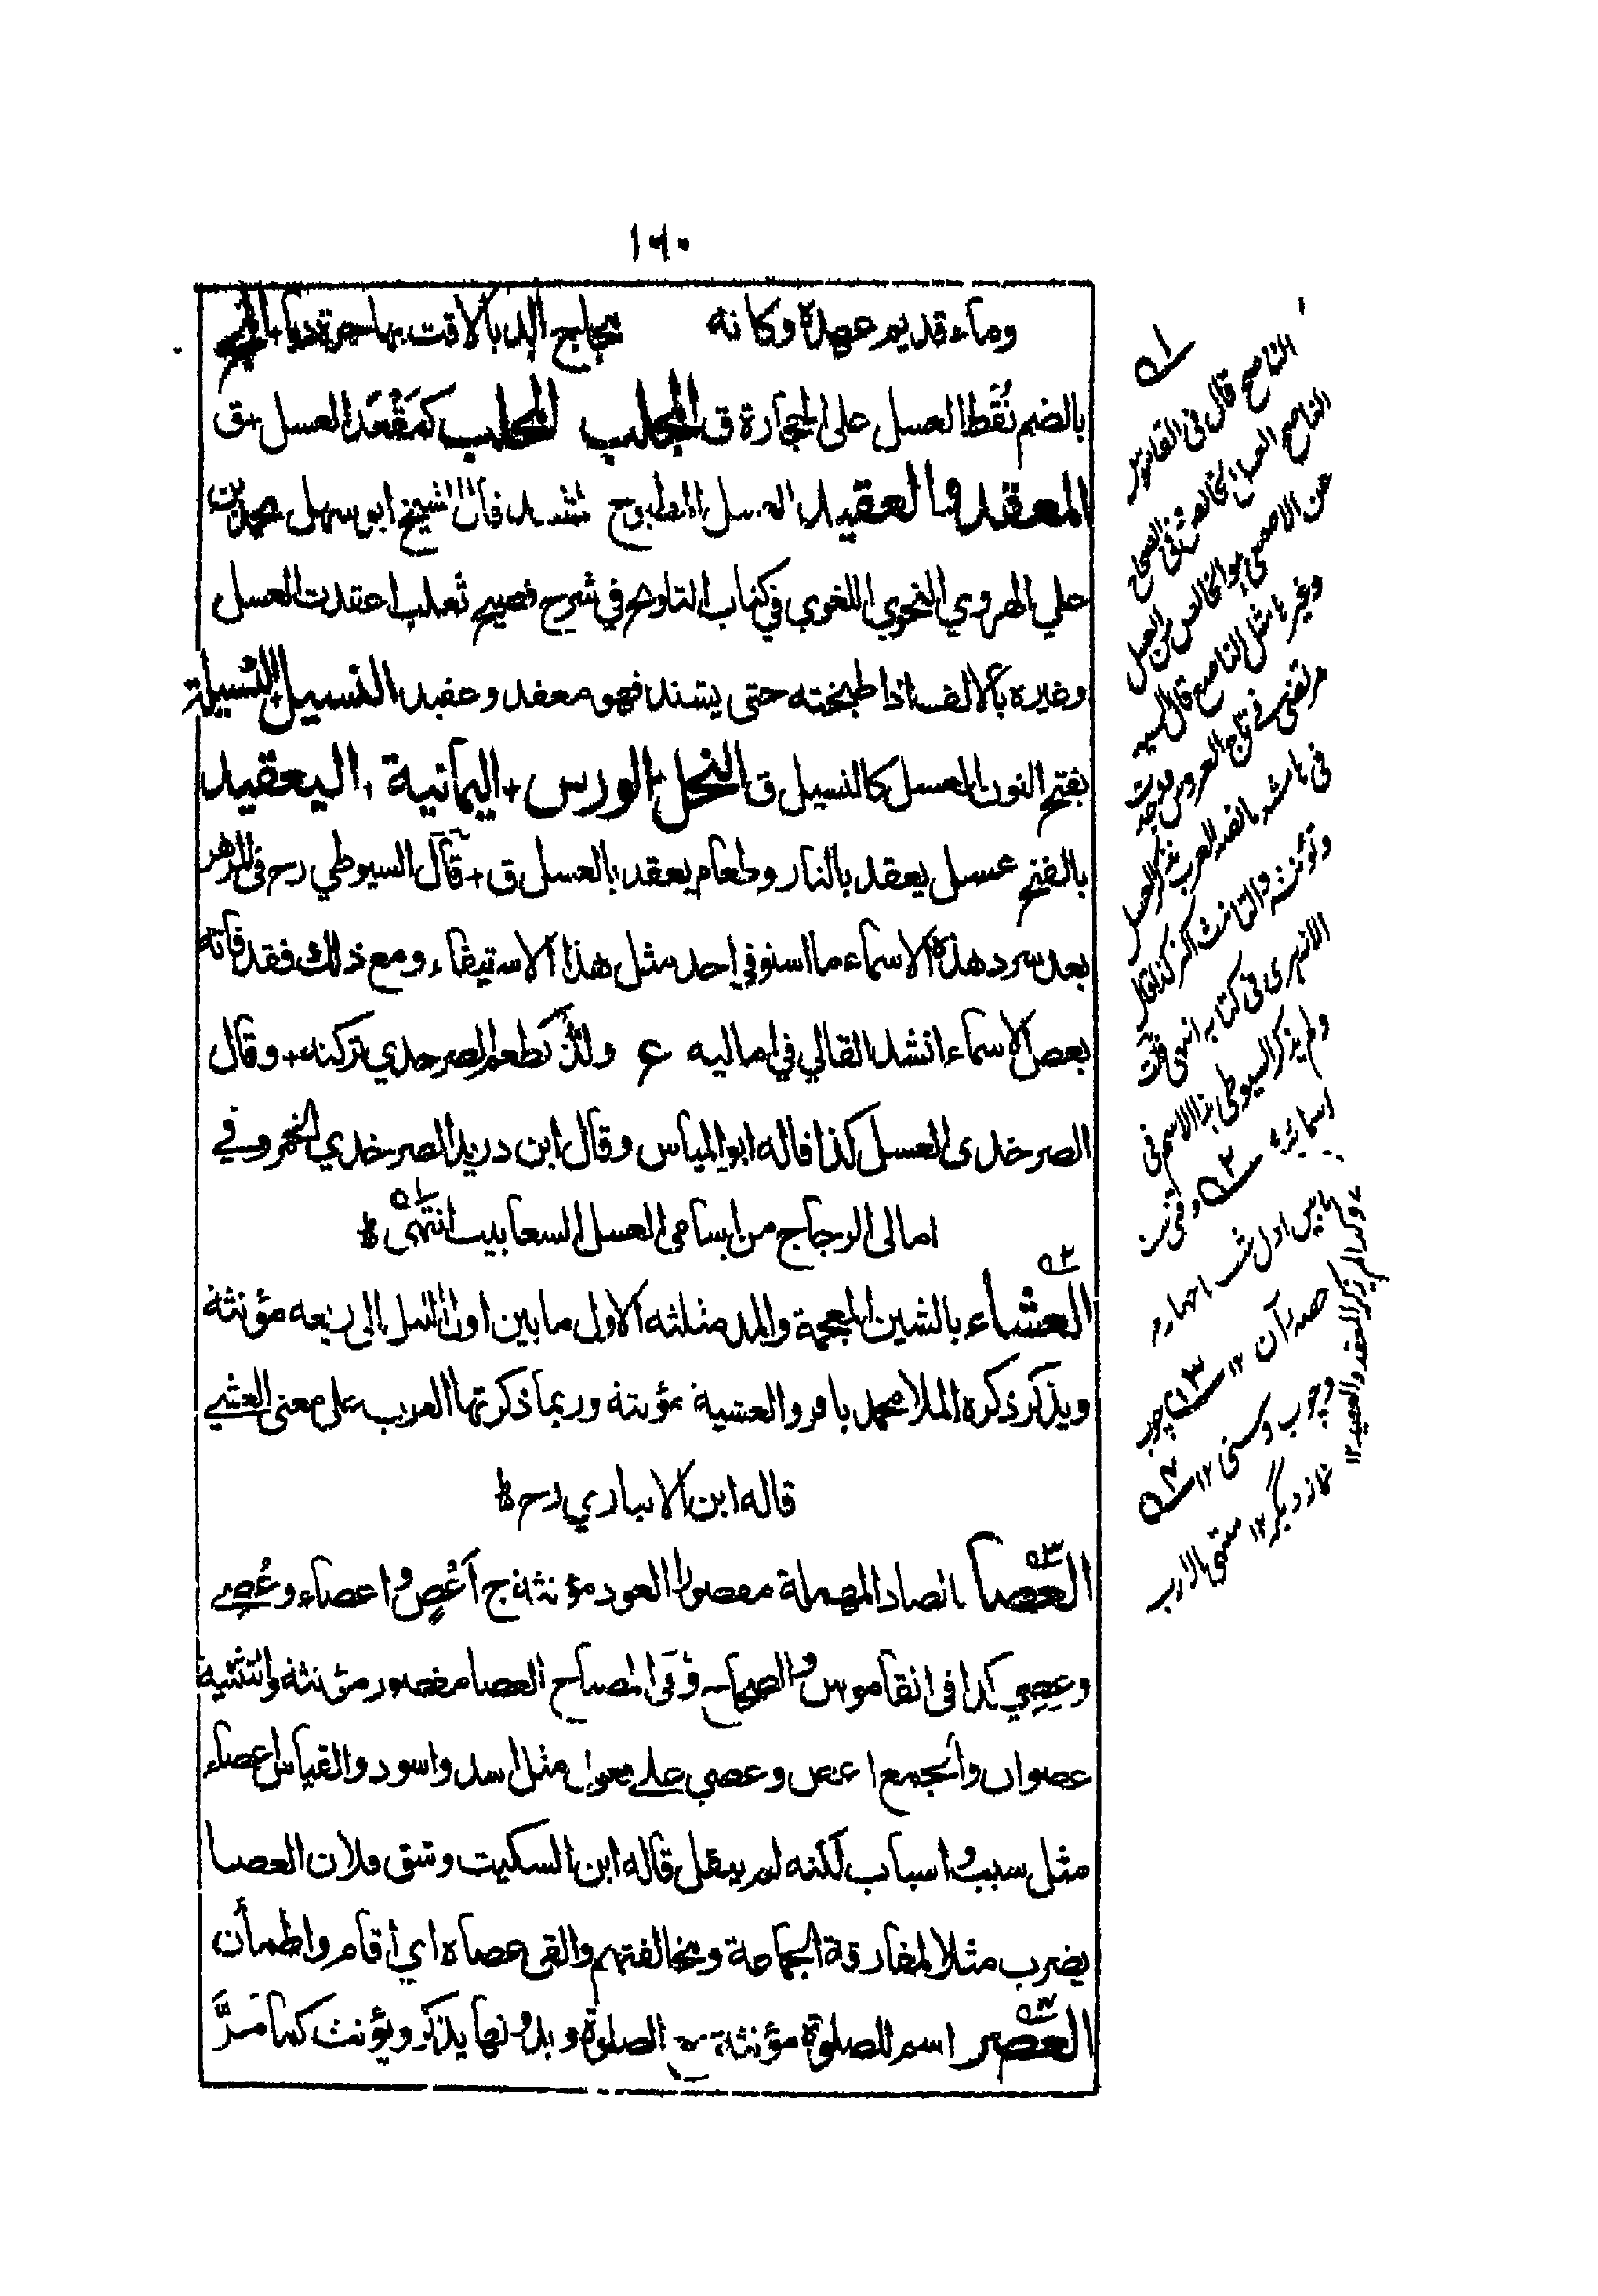 ١٦٠
وماء قديم عهده وكانه مجاج الدبا لاقت بهاجرة دبا +
بالضم نُقَط العسل على الحجارة ق المجلب المحلب كمَقْعَد العسل + ق
المعقد والعقيد العسل المطبوخ قال الشيخ ابو سهل محمد بن
علي الهروي النحوي اللغوي في كتاب التلويح في شرح فصيح ثعلب اعقدت العسل
وغيره بالالف اذا طبخته حتى يشتد فهو معقد وعقيد النسيل النسيلة
بفتح النون العسل كالنسيل ق النحل + الورس + اليمانية + اليعقيد
بالفتح عسل يعقد بالنار وطعام يعقد بالعسل ق + قال السيوطي رح في المزهر
بعد سرد هذه الاسماء ما استوفي احد مثل هذا الاستيفاء ومع ذلك فقد فاته
بعض الاسماء انشد القالي في اماليه ع ولذّ كطعم الصرخدي تركته + وقال
الصرخدى العسل كذا قاله ابو المياس وقال ابن دريد الصرخدي الخمر وفي
امالى الزجاج من اسامى العسل السعابيب انتهى
العشاء بالشين المعجمة والمد مثلثه الاول ما بين اول الليل الى ربعه مؤنثة
ويذكر ذكره الملا محمد باقر والعشية مؤنثة وربما ذكرتها العرب على معنى العشي
قاله ابن الانباري رح
العصا بالصاد المهملة مقصورا العود مؤنثة ج أَعْصٍ واعصاء وعُصِي
وعِصِي كذا فى القاموس والصحاح وفى المصباح العصا مقصور مؤنثة والتثنية
عصوان والجمع اعص وعصي على فعول مثل اسد واسود والقياس اعصاء
مثل سبب واسباب لكنه لم ينقل قاله ابن السكيت وشق فلان العصا
يضرب مثلا لمفارقة الجماعة ومخالفتهم والقى عصاه اي اقام واطمأن
العصر اسم للصلوة مؤنثة مع الصلوة وبدونها يذكر ويؤنث كما مَرَّ
الناصح قال فى القاموس
الناصح العسل الخالص وفى الصحاح
عن الاصمعي هو الخالص من العسل
وغيره مثل الناصع قال السيد
مرتضى فى تاج العروس
العرب تذكر العسل
وتؤنثه والتانيث اكثر كذا قال
الازهرى فى كتابه انتهى قلت
ولم يذكر السيوطى هذا الاسم فى
اسمائه
نماز ديگر ١٢ منتهى الارب